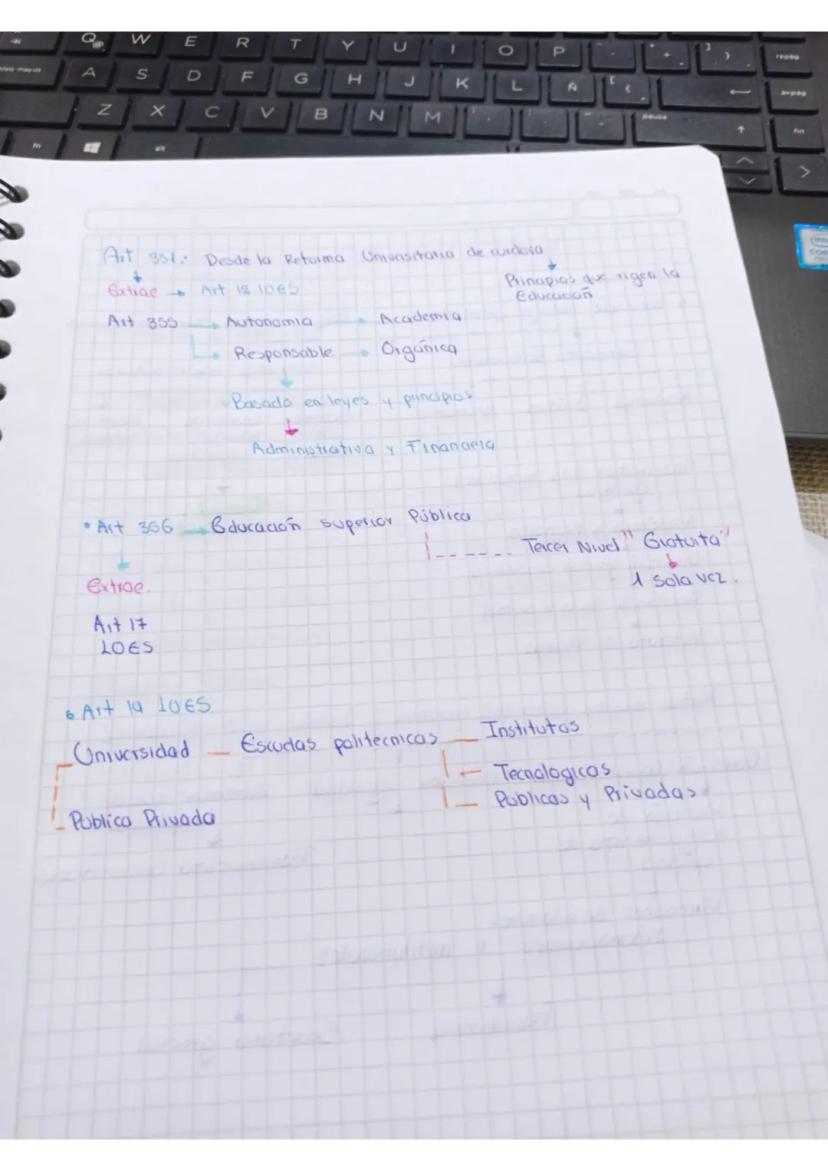 Q W E R T Y U I O P
A S D F G H J K L Ñ
Z X C V B N M
fn alt
pausa
repág
avpág
fin
Art 351: Desde la Reforma Universitaria de cordova
Extrae Art 12 LOES
Principios que rigen la
Educación
Art 355 Autonomia Academia
Responsable Orgánica
Basado en leyes y principios
Administrativa y Financiera
• Art 356 Educación superior Pública
Tercer Nivel "Gratuita"
Extrae.
1 sola vez.
Art 17
LOES
Art 14 LOES
Universidad Escuelas politecnicas Institutos
Tecnologicos
Publica Privada Publicos y Privadas